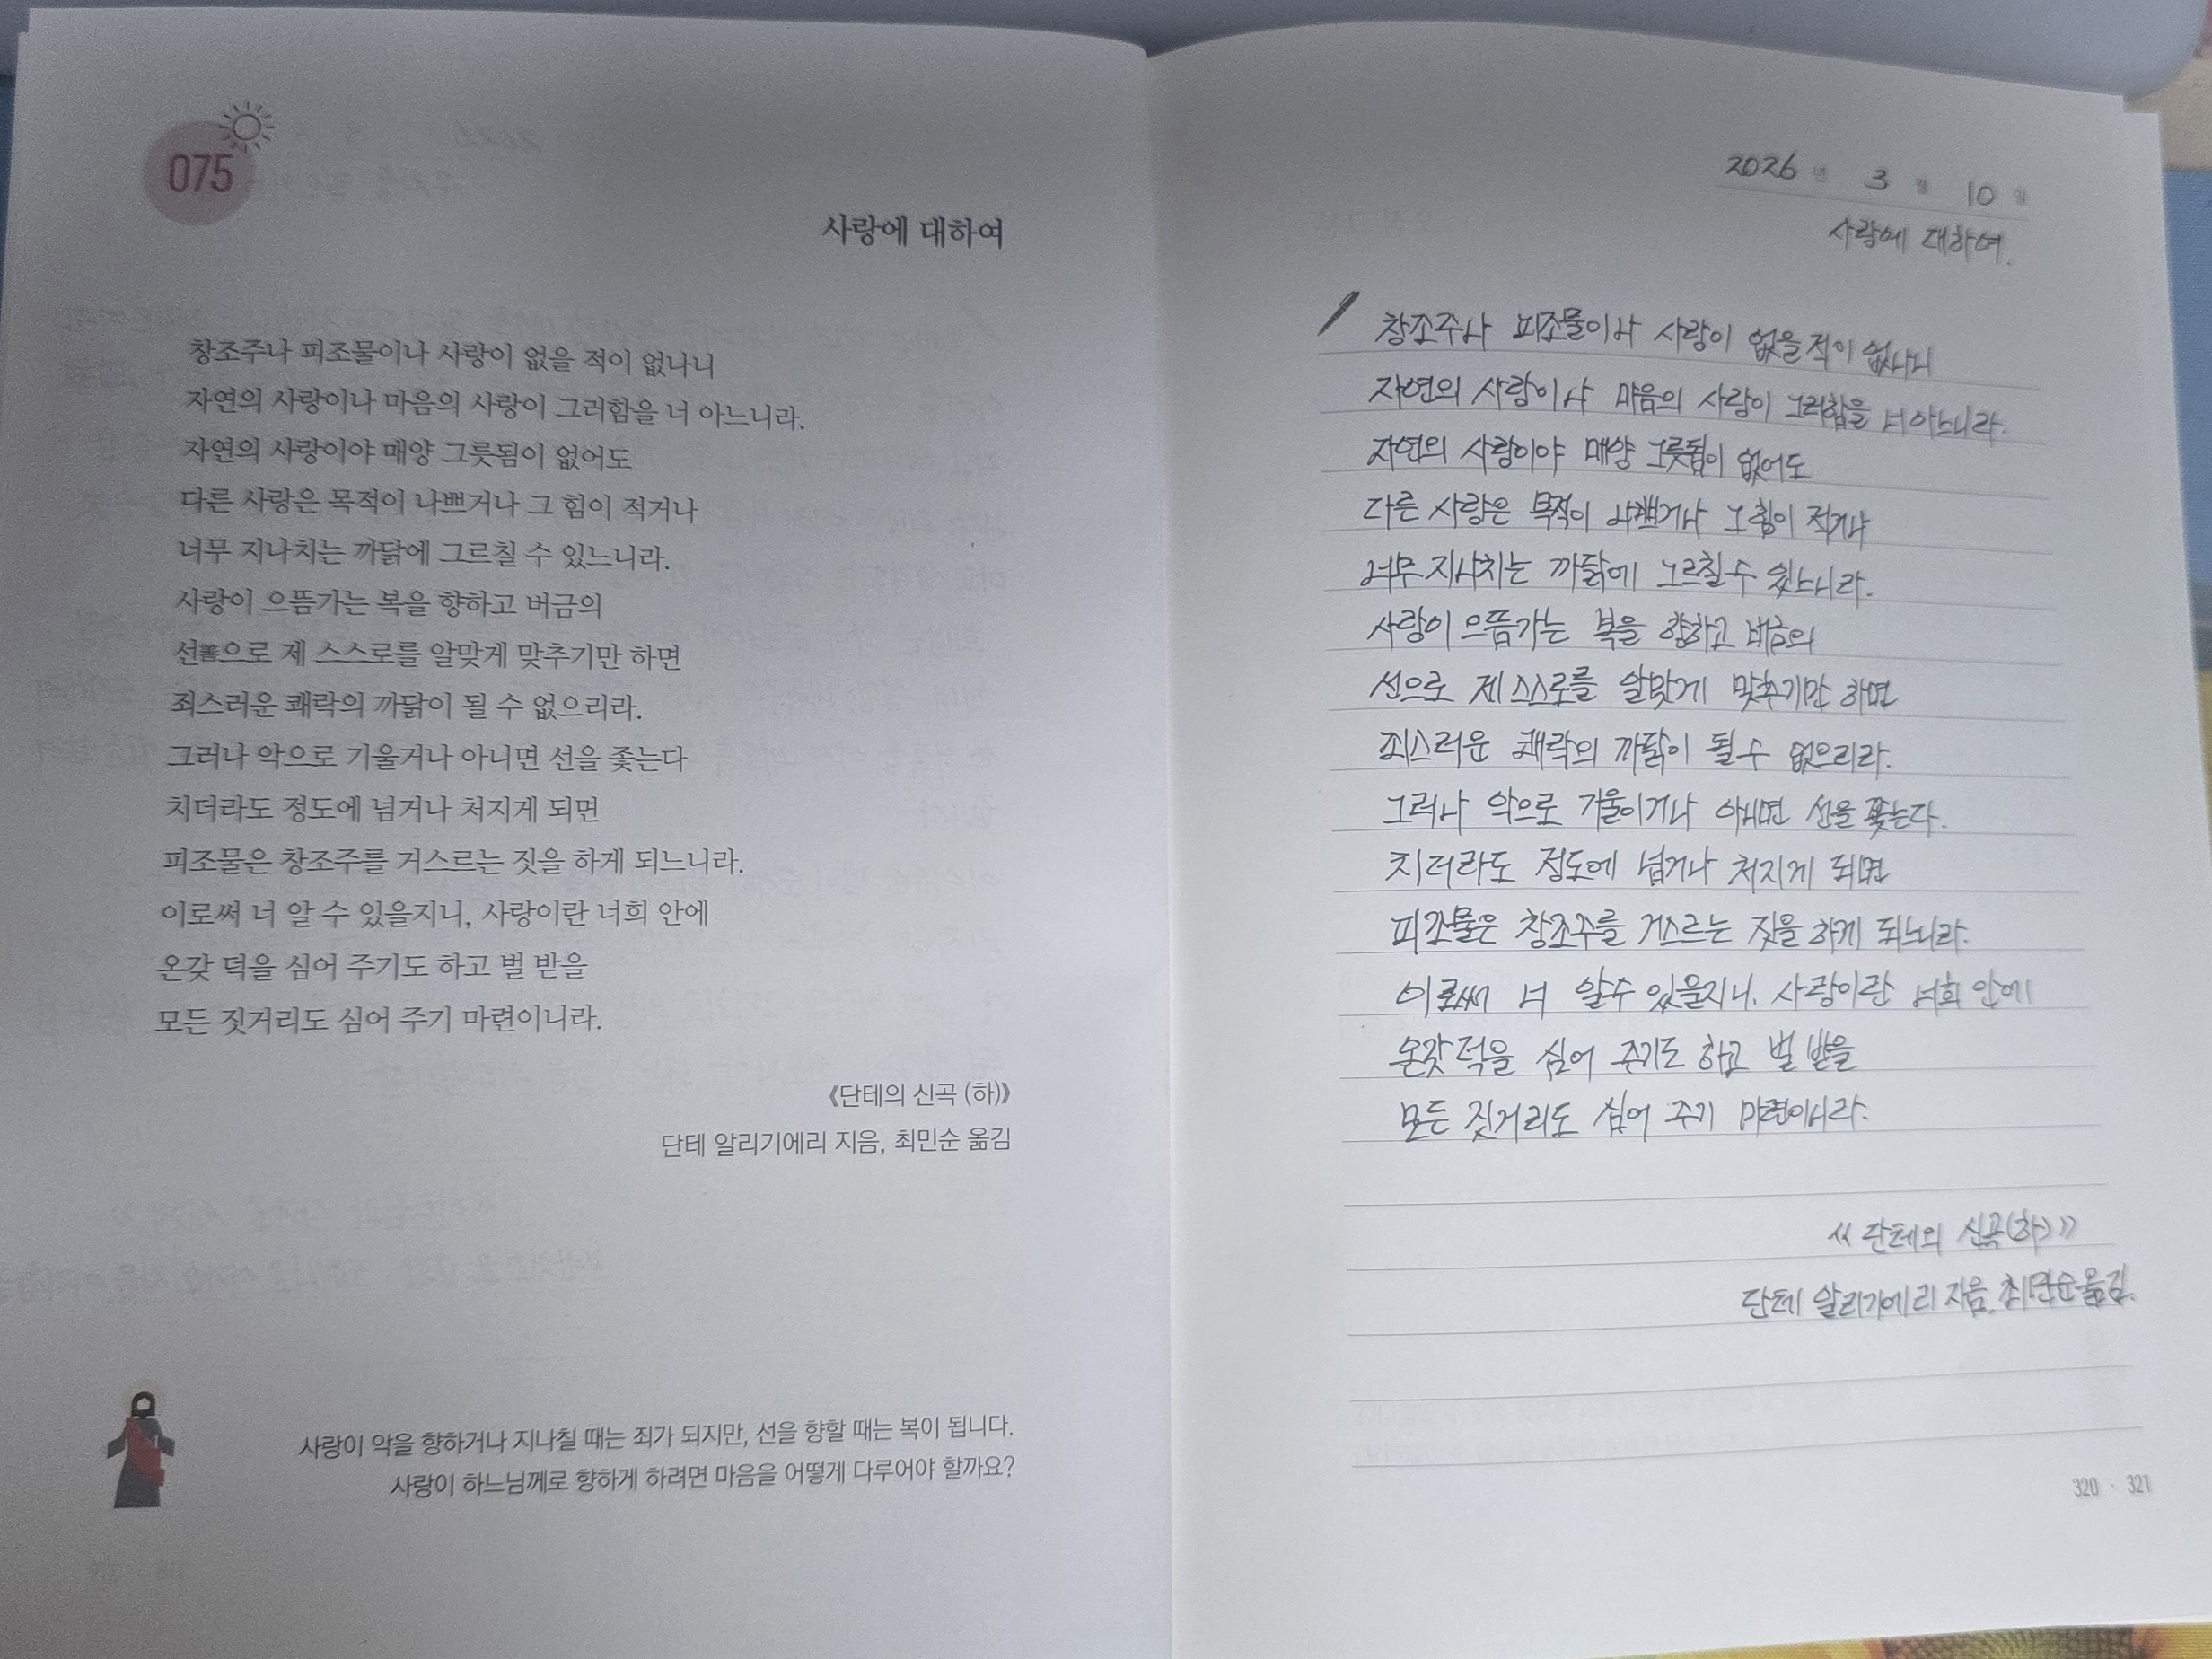 075
사랑에 대하여
창조주나 피조물이나 사랑이 없을 적이 없나니
자연의 사랑이나 마음의 사랑이 그러함을 너 아느니라.
자연의 사랑이야 매양 그릇됨이 없어도
다른 사랑은 목적이 나쁘거나 그 힘이 적거나
너무 지나치는 까닭에 그르칠 수 있느니라.
사랑이 으뜸가는 복을 향하고 버금의
선善으로 제 스스로를 알맞게 맞추기만 하면
죄스러운 쾌락의 까닭이 될 수 없으리라.
그러나 악으로 기울거나 아니면 선을 좇는다
치더라도 정도에 넘거나 처지게 되면
피조물은 창조주를 거스르는 짓을 하게 되느니라.
이로써 너 알 수 있을지니, 사랑이란 너희 안에
온갖 덕을 심어 주기도 하고 벌 받을
모든 짓거리도 심어 주기 마련이니라.
《단테의 신곡 (하)》
단테 알리기에리 지음, 최민순 옮김
사랑이 악을 향하거나 지나칠 때는 죄가 되지만, 선을 향할 때는 복이 됩니다.
사랑이 하느님께로 향하게 하려면 마음을 어떻게 다루어야 할까요?
2026 년 3 월 10 일
사랑에 대하여.
창조주나 피조물이나 사랑이 없을 적이 없나니
자연의 사랑이나 마음의 사랑이 그러함을 너 아느니라.
자연의 사랑이야 매양 그릇됨이 없어도
다른 사랑은 목적이 나쁘거나 그 힘이 적거나
너무 지나치는 까닭에 그르칠 수 있느니라.
사랑이 으뜸가는 복을 향하고 버금의
선으로 제 스스로를 알맞게 맞추기만 하면
죄스러운 쾌락의 까닭이 될 수 없으리라.
그러나 악으로 기울이거나 아니면 선을 좇는다.
치더라도 정도에 넘거나 처지게 되면
피조물은 창조주를 거스르는 짓을 하게 되느니라.
이로써 너 알 수 있을지니, 사랑이란 너희 안에
온갖 덕을 심어 주기도 하고 벌 받을
모든 짓거리도 심어 주기 마련이니라.
《단테의 신곡(하)》
단테 알리기에리 지음, 최민순 옮김.
320 · 321